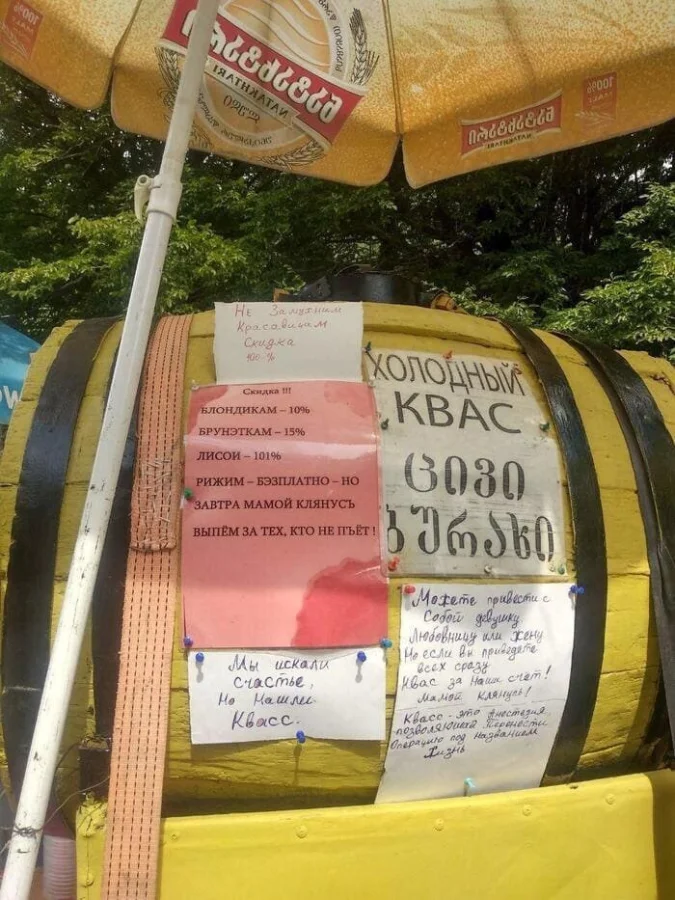 ნატახტარი
NATAKHTARI
ნატახტარი
NATAKHTARI
100%
100%
Не Замужним
Красавицам
Скидка
100%
Скидка !!!
БЛОНДИКАМ – 10%
БРУНЭТКАМ – 15%
ЛИСОИ – 101%
РИЖИМ – БЭЗПЛАТНО – НО
ЗАВТРА МАМОЙ КЛЯНУСЪ
ВЫПЁМ ЗА ТЕХ, КТО НЕ ПЪЁТ !
ХОЛОДНЫЙ
КВАС
ცივი
ბურახი
Мы искали
счастье,
Но Нашли
Квасс.
Можете привести с
Собой девушку
Любовницу или жену
Но если вы приведёте
всех сразу
Квас за наш счёт!
Мамой Клянусь!
Квасс - это Анестезия
позволяющая перенести
Операцию под названием
Жизнь